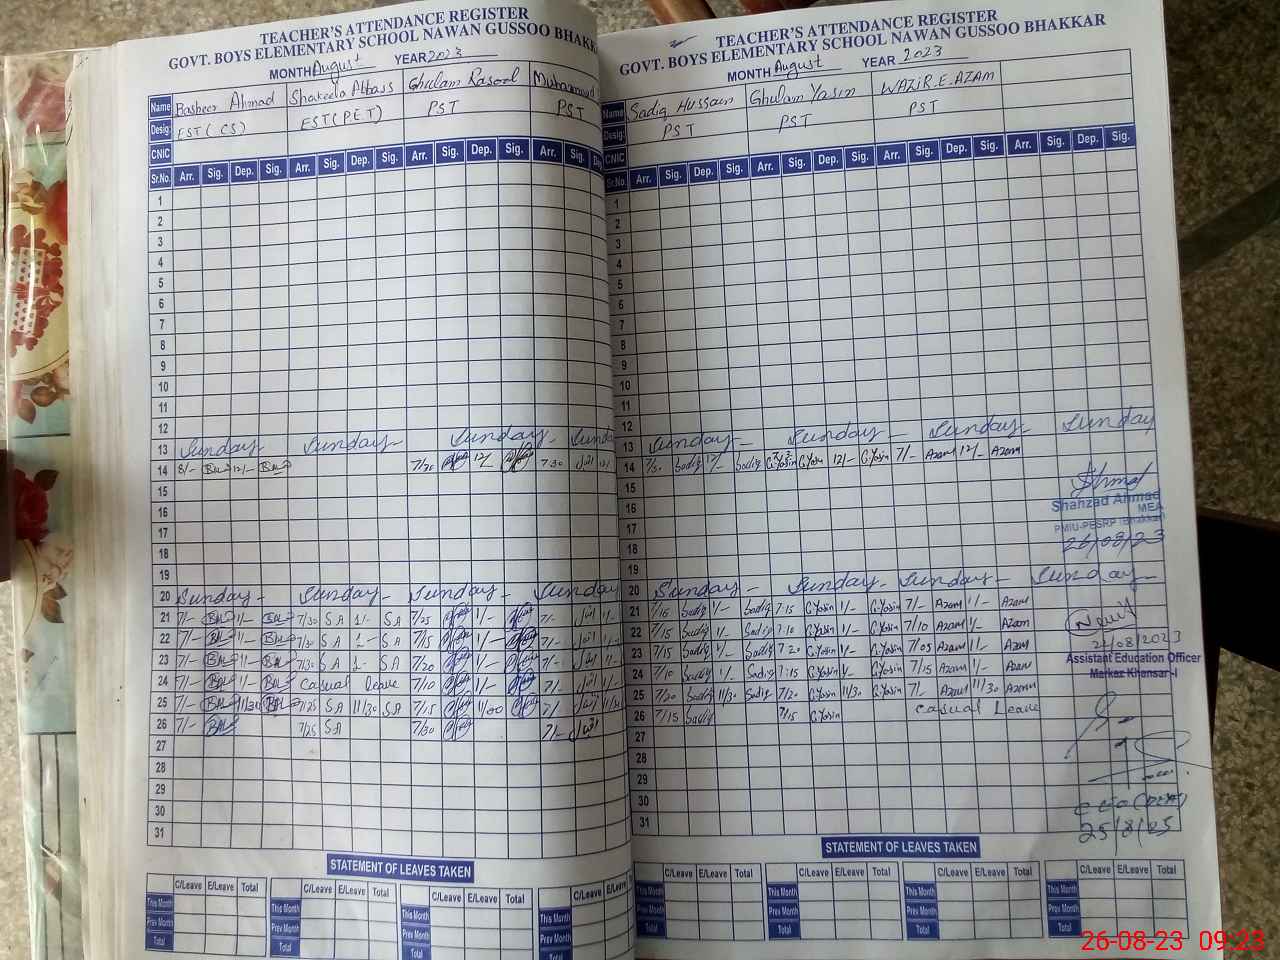 TEACHER'S ATTENDANCE REGISTER
GOVT. BOYS ELEMENTARY SCHOOL NAWAN GUSSOO BHAKK
MONTH August YEAR 2023
Name Basheer Ahmad Shakeela Abbass Ghulam Rasool Muhammad
Desig: EST(CS) EST(PET) PST PST
CNIC
Sr.No. Arr. Sig. Dep. Sig. Arr. Sig. Dep. Sig. Arr. Sig. Dep. Sig. Arr. Sig. De
1
2
3
4
5
6
7
8
9
10
11
12
13 Sunday Sunday Sunday Sunday
14 8/- 12/- 7/20 12/- 7:30
15
16
17
18
19
20 Sunday Sunday Sunday Sunday
21 7/- 1/- 7/30 SA 1/- SA 7/25 1/- 7/-
22 7/- 1/- 7/30 SA 1/- SA 7/15 1/- 7/-
23 7/- 1/- 7/30 SA 1- SA 7/20 1/- 7/-
24 7/- 1/- Casual leave 7/10 1/- 7/-
25 7/- 11/30 7/25 SA 11/30 SA 7/15 11/30 7/-
26 7/- 7/25 SA 7/30 7/-
27
28
29
30
31
STATEMENT OF LEAVES TAKEN
C/Leave E/Leave Total C/Leave E/Leave Total C/Leave E/Leave Total C/Leave
This Month This Month This Month This Month
Prev Month Prev Month Prev Month Prev Month
Total Total Total Total
TEACHER'S ATTENDANCE REGISTER
GOVT. BOYS ELEMENTARY SCHOOL NAWAN GUSSOO BHAKKAR
MONTH August YEAR 2023
Name Sadiq Hussain Ghulam Yasin WAZIR.E.AZAM
Desig: PST PST PST
CNIC
Sr.No. Arr. Sig. Dep. Sig. Arr. Sig. Dep. Sig. Arr. Sig. Dep. Sig. Arr. Sig. Dep. Sig.
1
2
3
4
5
6
7
8
9
10
11
12
13 Sunday Sunday Sunday Sunday
14 Sadiq 12/- Sadiq G.Yasin 12/- G.Yasin 7/- Azam 12/- Azam
15
16
17
18
19
20 Sunday Sunday Sunday Sunday
21 7/16 Sadiq 1/- Sadiq 7:15 G.Yasin 1/- G.Yasin 7/- Azam 1/- Azam
22 7/15 Sadiq 1/- Sadiq 7:10 G.Yasin 1/- G.Yasin 7/10 Azam 1/- Azam
23 7/15 Sadiq 1/- Sadiq 7:20 G.Yasin 1/- G.Yasin 7/05 Azam 1/- Azam
24 7/10 Sadiq 1/- Sadiq 7:15 G.Yasin G.Yasin 7/15 Azam 1/- Azam
25 7/20 Sadiq 11/30 Sadiq 7/20 G.Yasin 11/30 G.Yasin 7/- Azam 11/30 Azam
26 7/15 Sadiq 7/15 G.Yasin Casual Leave
27
28
29
30
31
Ahmad
Shahzad Ahmad
MEA
PMIU-PESRP (Bhakkar)
26/08/23
24/08/2023
Assistant Education Officer
Markaz Khansar-I
CEO(DEA)
25/8/23
STATEMENT OF LEAVES TAKEN
C/Leave E/Leave Total C/Leave E/Leave Total C/Leave E/Leave Total C/Leave E/Leave Total
This Month This Month This Month This Month
Prev Month Prev Month Prev Month Prev Month
Total Total Total Total
26-08-23 09:23